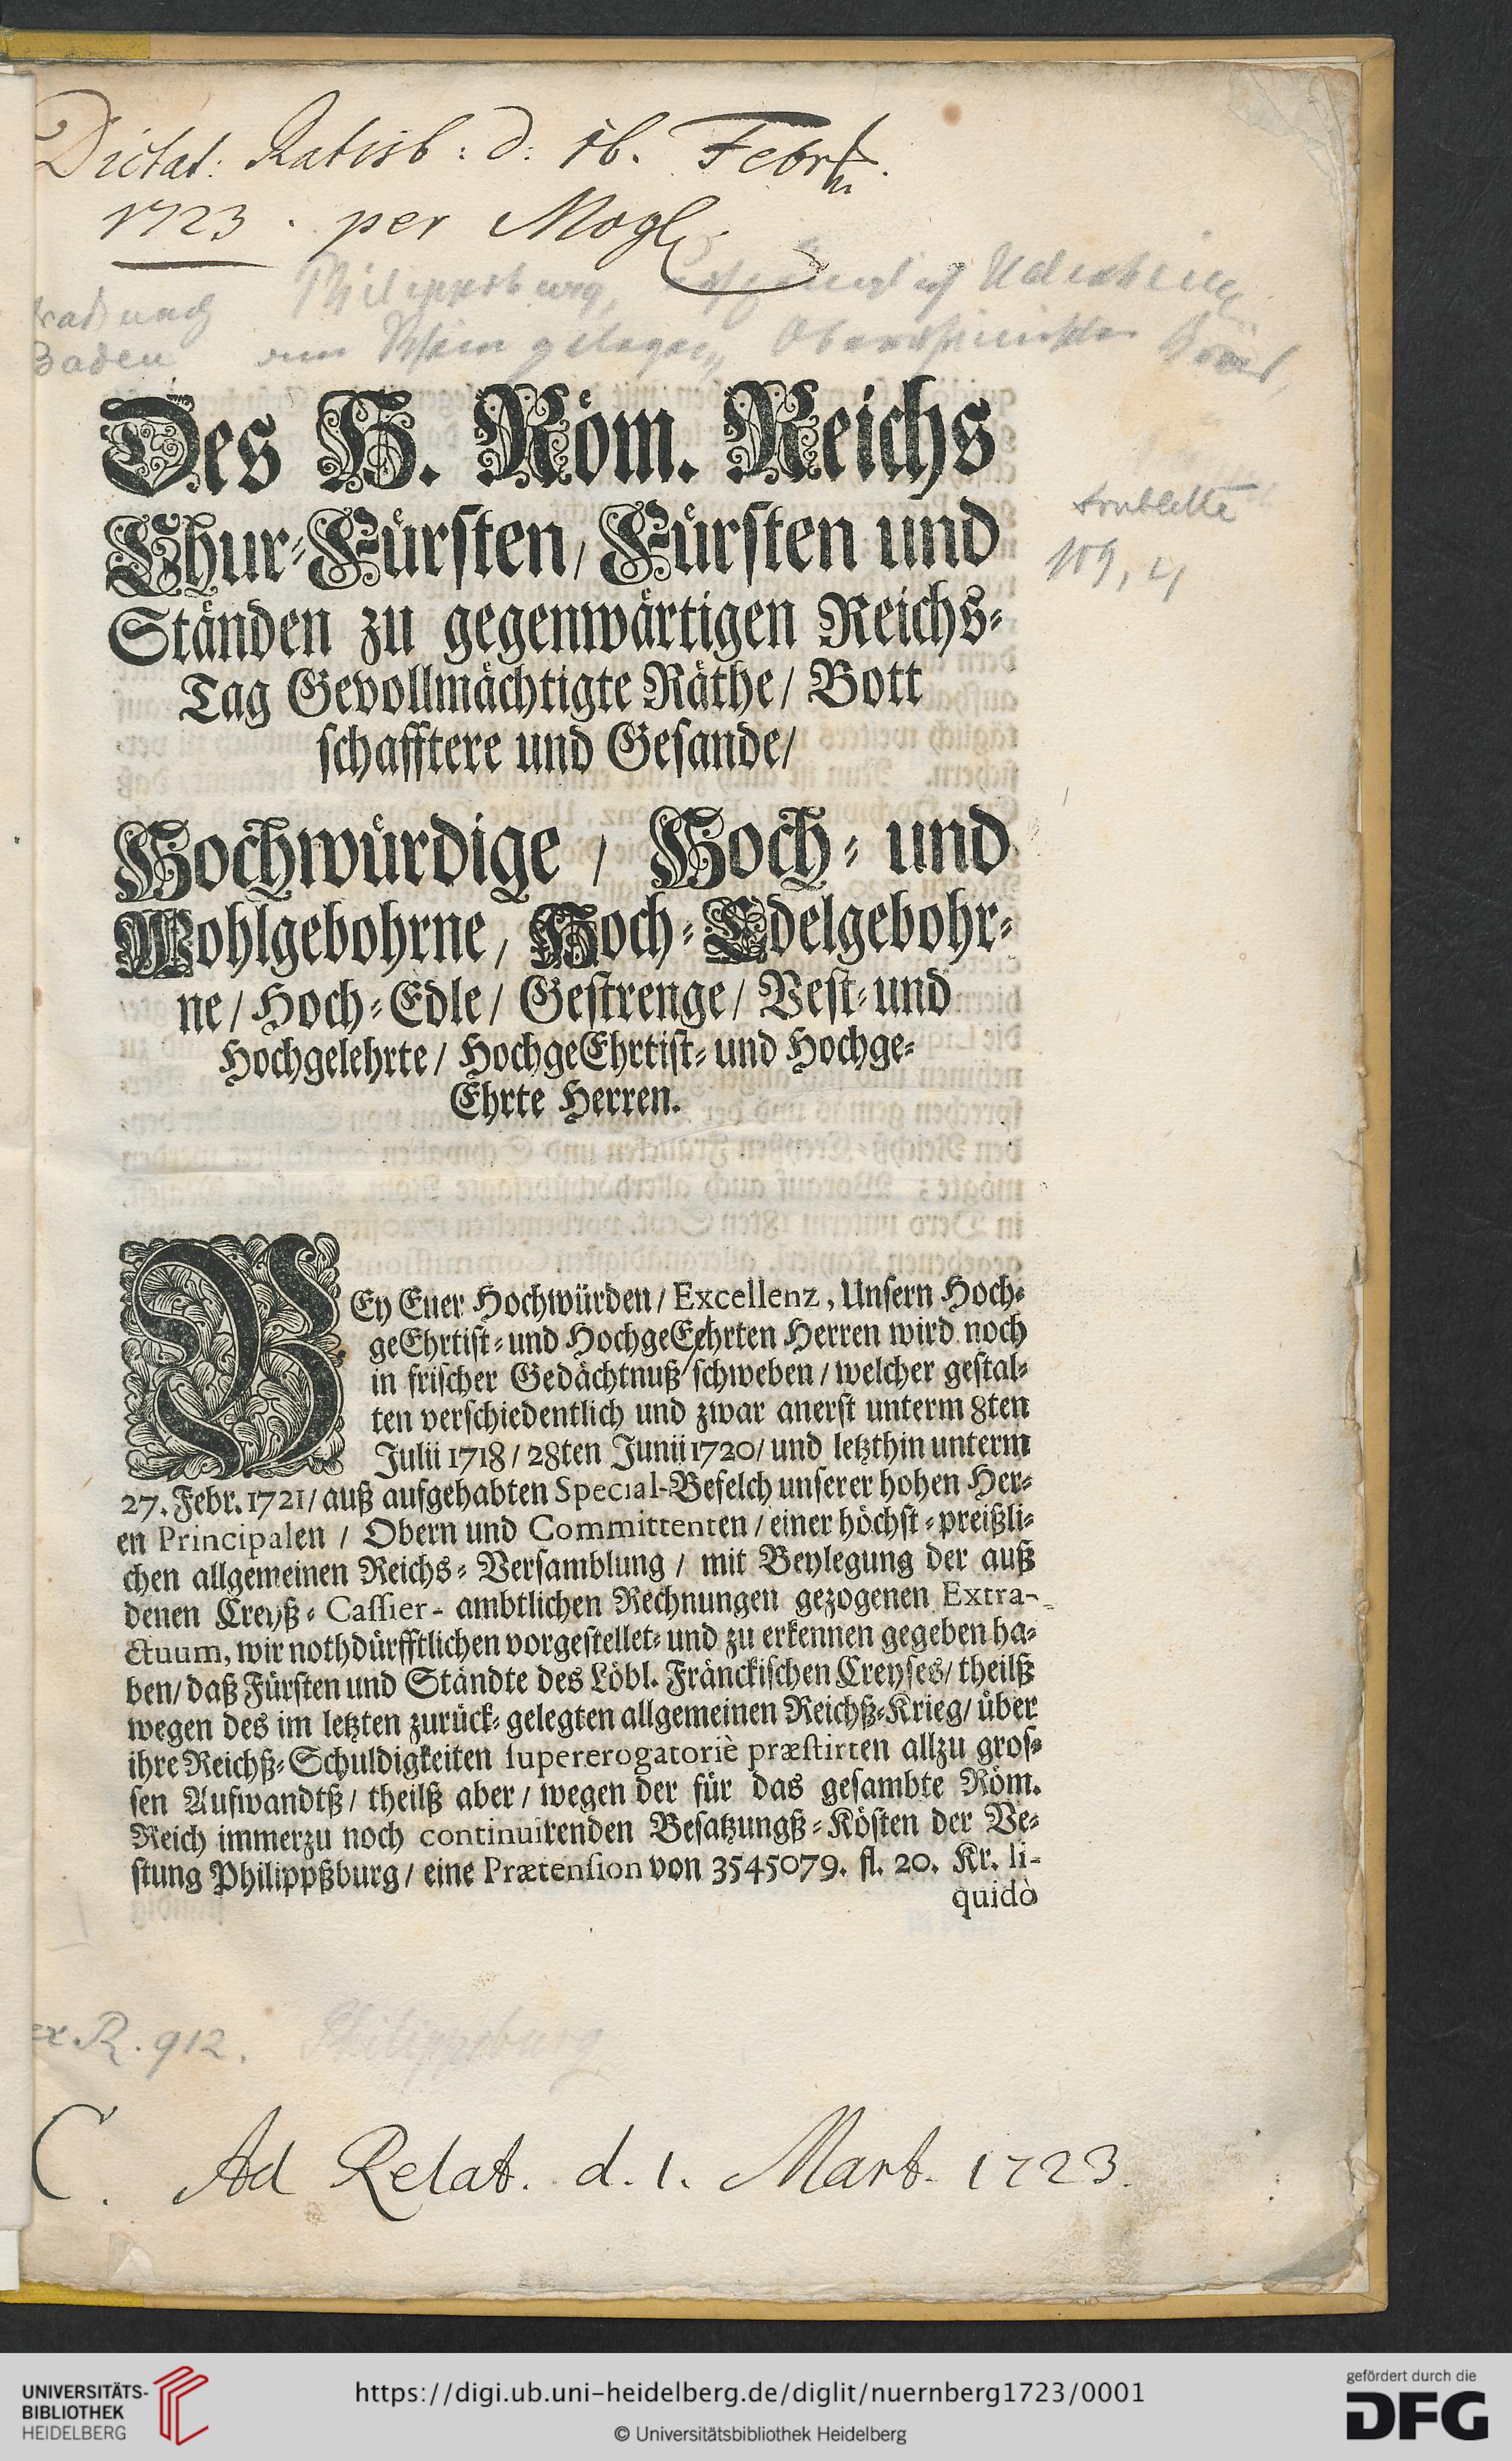 Dictat: Ratisb: d: 16. Febr.
1723. per Mogl
Philippsburg, Udenheim
Baden am Rhein gelegen,
109, 4
Des H. Röm. Reichs
Chur-Fürsten/ Fürsten und
Ständen zu gegenwärtigen Reichs-
Tag Gevollmächtigte Räthe/ Bott
schafftere und Gesande/
Hochwürdige / Hoch- und
Wohlgebohrne, Hoch-Edelgebohr-
ne/ Hoch-Edle/ Gestrenge/ Vest- und
Hochgelehrte/ HochgeEhrtist- und Hochge-
Ehrte Herren.
BEy Euer Hochwürden/ Excellenz, Unsern Hoch-
geEhrtist- und HochgeEehrten Herren wird noch
in frischer Gedächtnuß schweben / welcher gestal-
ten verschiedentlich und zwar anerst unterm 8ten
Julii 1718/ 28ten Junii 1720/ und letzthin unterm
27. Febr. 1721/ auß aufgehabten Special-Befelch unserer hohen Her-
en Principalen / Obern und Committenten / einer höchst-preißli-
chen allgemeinen Reichs-Versamblung / mit Beylegung der auß
denen Creyß-Cassier-ambtlichen Rechnungen gezogenen Extra-
ctuum, wir nothdürfftlichen vorgestellet- und zu erkennen gegeben ha-
ben/ daß Fürsten und Ständte des Löbl. Fränckischen Creyses/ theilß
wegen des im letzten zurück-gelegten allgemeinen Reichß-Krieg/ über
ihre Reichß-Schuldigkeiten supererogatoriè præstirten allzu gros-
sen Aufwandtß/ theilß aber / wegen der für das gesambte Röm.
Reich immerzu noch continuirenden Besatzungß-Kösten der Ve-
stung Philippßburg/ eine Prætension von 3545079. fl. 20. Kr. li-
quidò
ex R. 912. Philippsburg
C. Ad Relat. d. 1. Mart. 1723.
UNIVERSITÄTS-
BIBLIOTHEK
HEIDELBERG
https://digi.ub.uni-heidelberg.de/diglit/nuernberg1723/0001
© Universitätsbibliothek Heidelberg
gefördert durch die
DFG